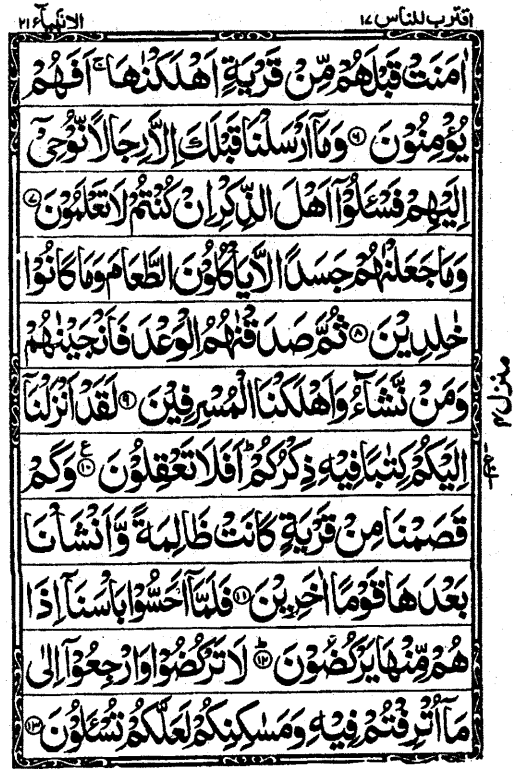 اقترب للناس ١٧
الانبیآء ٢١
اٰمَنَتْ قَبْلَهُمْ مِّنْ قَرْیَةٍ اَهْلَكْنٰهَا ۚ اَفَهُمْ
یُؤْمِنُوْنَ ۝٦ وَمَاۤ اَرْسَلْنَا قَبْلَكَ اِلَّا رِجَالًا نُّوْحِیْۤ
اِلَیْهِمْ فَسْـَٔلُوْۤا اَهْلَ الذِّكْرِ اِنْ كُنْتُمْ لَا تَعْلَمُوْنَ ۝٧
وَمَا جَعَلْنٰهُمْ جَسَدًا لَّا یَاْكُلُوْنَ الطَّعَامَ وَمَا كَانُوْا
خٰلِدِیْنَ ۝٨ ثُمَّ صَدَقْنٰهُمُ الْوَعْدَ فَاَنْجَیْنٰهُمْ
وَمَنْ نَّشَآءُ وَاَهْلَكْنَا الْمُسْرِفِیْنَ ۝٩ لَقَدْ اَنْزَلْنَاۤ
اِلَیْكُمْ كِتٰبًا فِیْهِ ذِكْرُكُمْ ؕ اَفَلَا تَعْقِلُوْنَ ۝١٠ ع وَكَمْ
قَصَمْنَا مِنْ قَرْیَةٍ كَانَتْ ظَالِمَةً وَّاَنْشَاْنَا
بَعْدَهَا قَوْمًا اٰخَرِیْنَ ۝١١ فَلَمَّاۤ اَحَسُّوْا بَاْسَنَاۤ اِذَا
هُمْ مِّنْهَا یَرْكُضُوْنَ ۝١٢ؕ لَا تَرْكُضُوْا وَارْجِعُوْۤا اِلٰی
مَاۤ اُتْرِفْتُمْ فِیْهِ وَمَسٰكِنِكُمْ لَعَلَّكُمْ تُسْـَٔلُوْنَ ۝١٣
منزل ٤